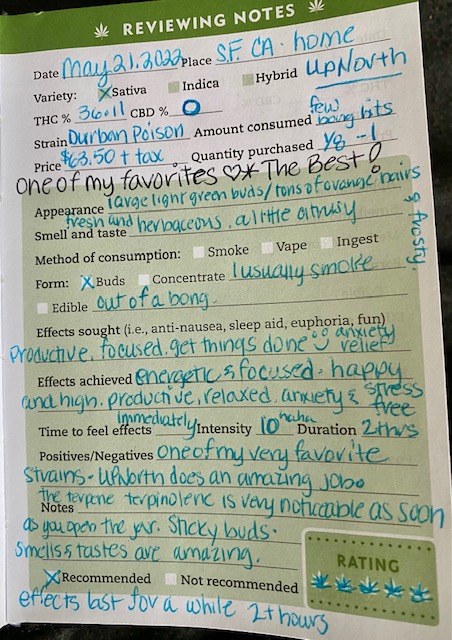 REVIEWING NOTES
Date May 21. 2022 Place S.F. CA. home
Variety: Sativa Indica Hybrid UpNorth
THC % 36.11 CBD % 0
Strain Durban Poison Amount consumed few bong hits
Price $63.50 + tax. Quantity purchased 1/8 - 1
one of my favorites ♡* The Best!
Appearance large light green buds/tons of orange hairs & frosty.
Smell and taste fresh and herbaceous. a little citrusy
Method of consumption: Smoke Vape Ingest
Form: Buds Concentrate I usually smoke
Edible out of a bong.
Effects sought (i.e., anti-nausea, sleep aid, euphoria, fun)
Productive, focused, get things done anxiety relief
Effects achieved energetic & focused. happy
and high. productive, relaxed. anxiety & stress free
Time to feel effects Immediately Intensity 10 haha Duration 2+hrs
Positives/Negatives one of my very favorite
strains. UpNorth does an amazing job.
Notes The terpene terpinolene is very noticable as soon
as you open the jar. Sticky buds.
Smells & tastes are amazing.
RATING
Recommended Not recommended
effects last for a while 2+ hours